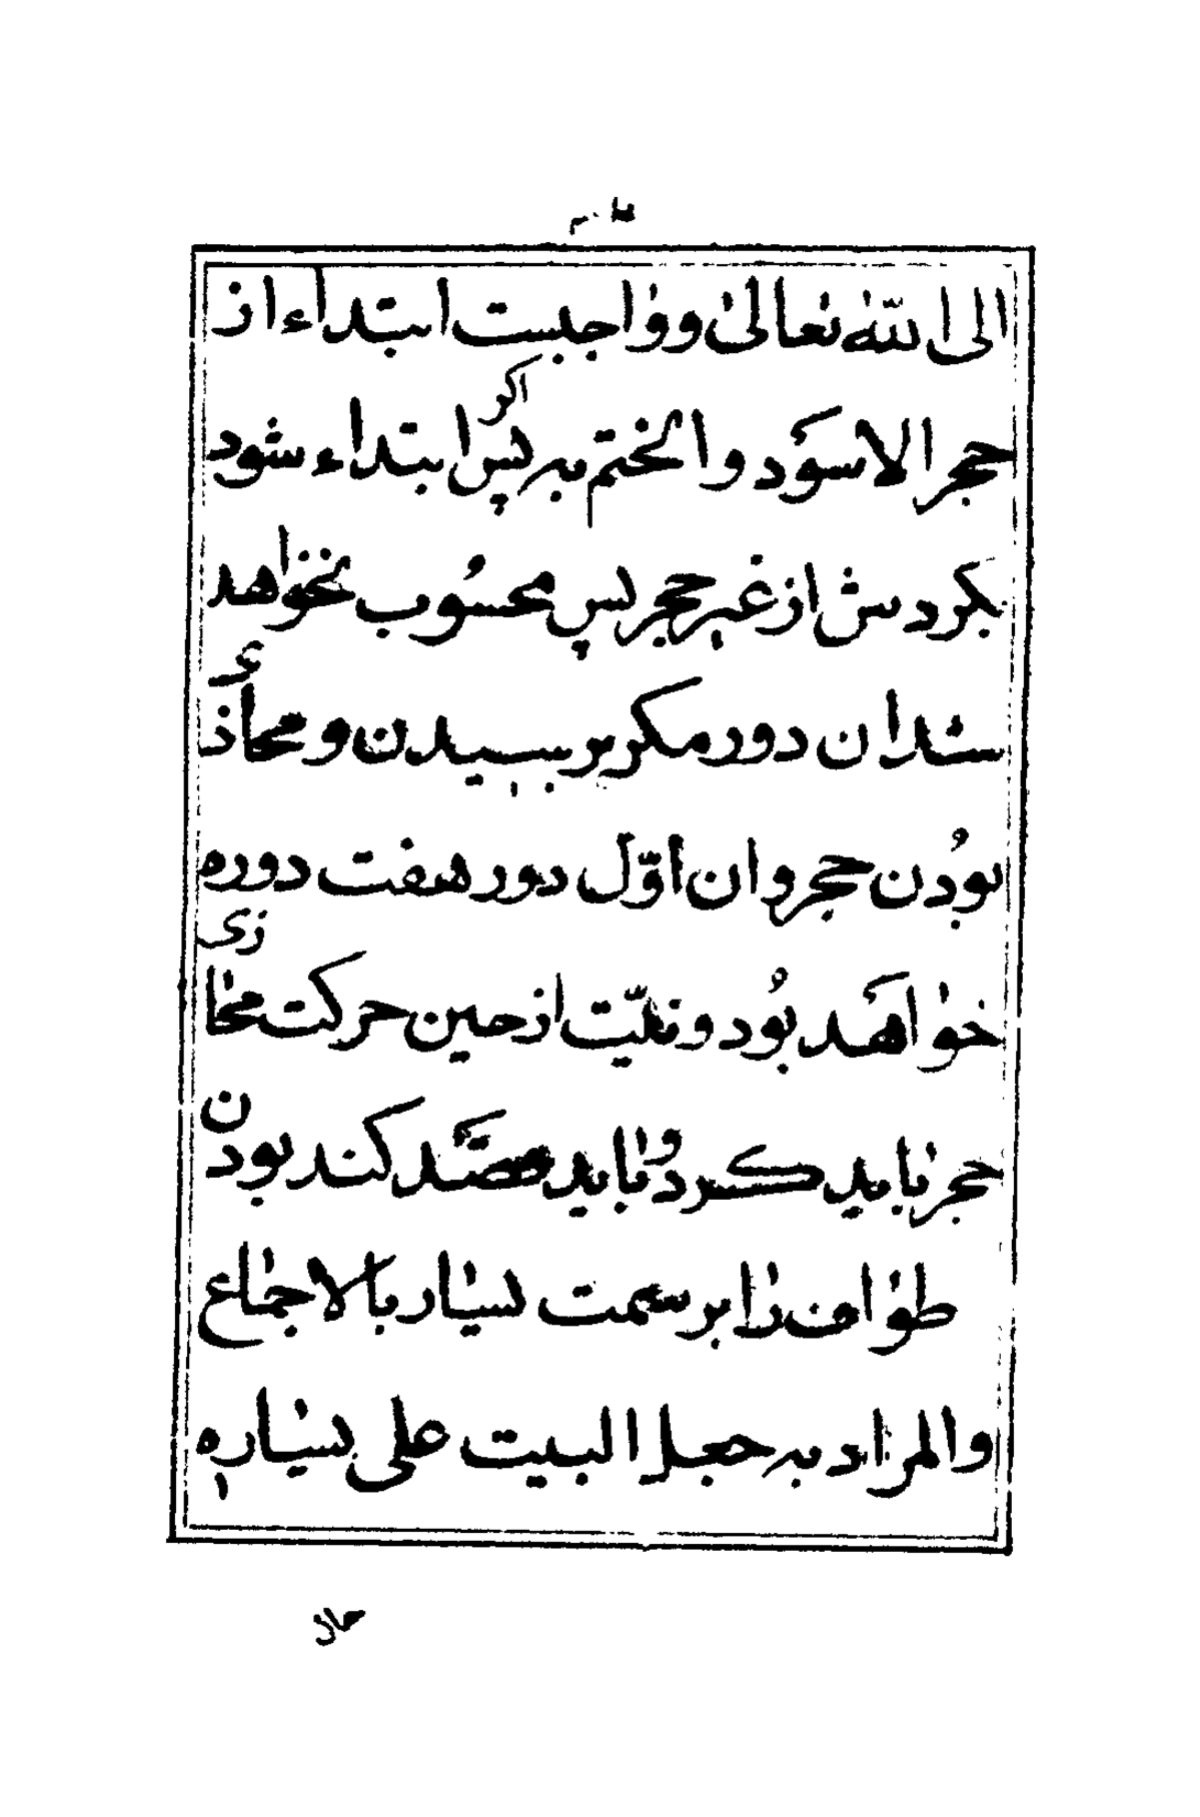 الی اللّه تعالیٰ و واجبست ابتداء از
حجر الاسوَد و الختم به پس اکر ابتداء شود
بکردش از غیر حجر پس محسُوب نخواهد
شد ان دور مکر برسیدن و محاذی
بوُدن حجر و ان اوّل دور هفت دوره
خواهَد بوُد و نیّت از حین حرکت محاذی
حجر باید کرد و باید قصَد کند بودن
طواف را بر سمت یسار بالاجماع
والمراد به جعل البیت علی یساره
حال